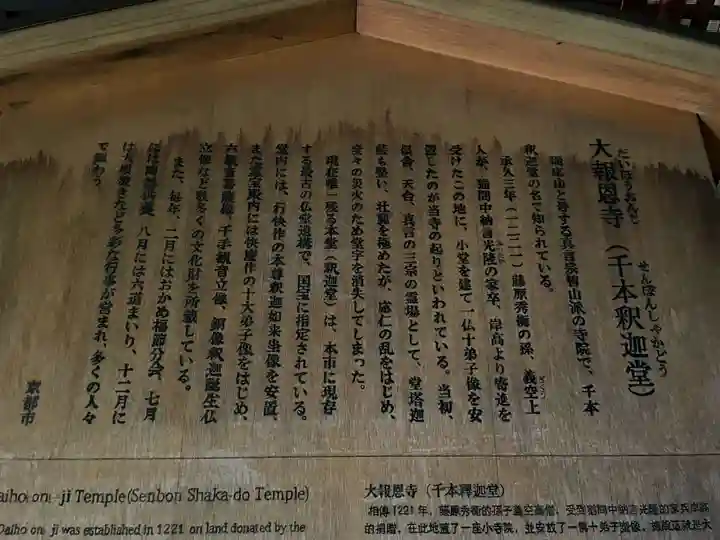 大報恩寺（千本釈迦堂）
だいほうおんじ
せんぼんしゃかどう
瑞応山と号する真言宗智山派の寺院で、千本
釈迦堂の名で知られている。
承久三年（一二二一）藤原秀衡の孫、義空上
ぎくう
人が、猫間中納言光隆の家卒、岸高より寄進を
受けたこの地に、小堂を建て一仏十弟子像を安
置したのが当寺の起りといわれている。当初、
倶舎、天台、真言の三宗の霊場として、堂塔迦
藍も整い、壮観を極めたが、応仁の乱をはじめ、
変々の災火のため堂宇を消失してしまった。
現在唯一残る本堂（釈迦堂）は、本市に現存
する最古の仏堂遺構で、国宝に指定されている。
堂内には、行快作の本尊釈迦如来坐像を安置、
また霊宝殿内には快慶作の十大弟子像をはじめ、
六観音菩薩像、千手観音立像、銅像釈迦誕生仏
立像など数多くの文化財を所蔵している。
また、毎年、二月にはおかめ福節分会、七月
には陶器供養、八月には六道まいり、十二月に
は大根焚きなど多彩な行事が営まれ、多くの人々
で賑わう
京都市
aiho on-ji Temple(Senbon Shaka-do Temple)
Daiho on-ji was established in 1221 on land donated by the
大報恩寺（千本釋迦堂）
相傳1221年，藤原秀衡的孫子義空高僧，受到猫間中納言光隆的家兵岸高
的捐贈，在此地蓋了一座小寺院，並安放了一佛十弟子塑像，